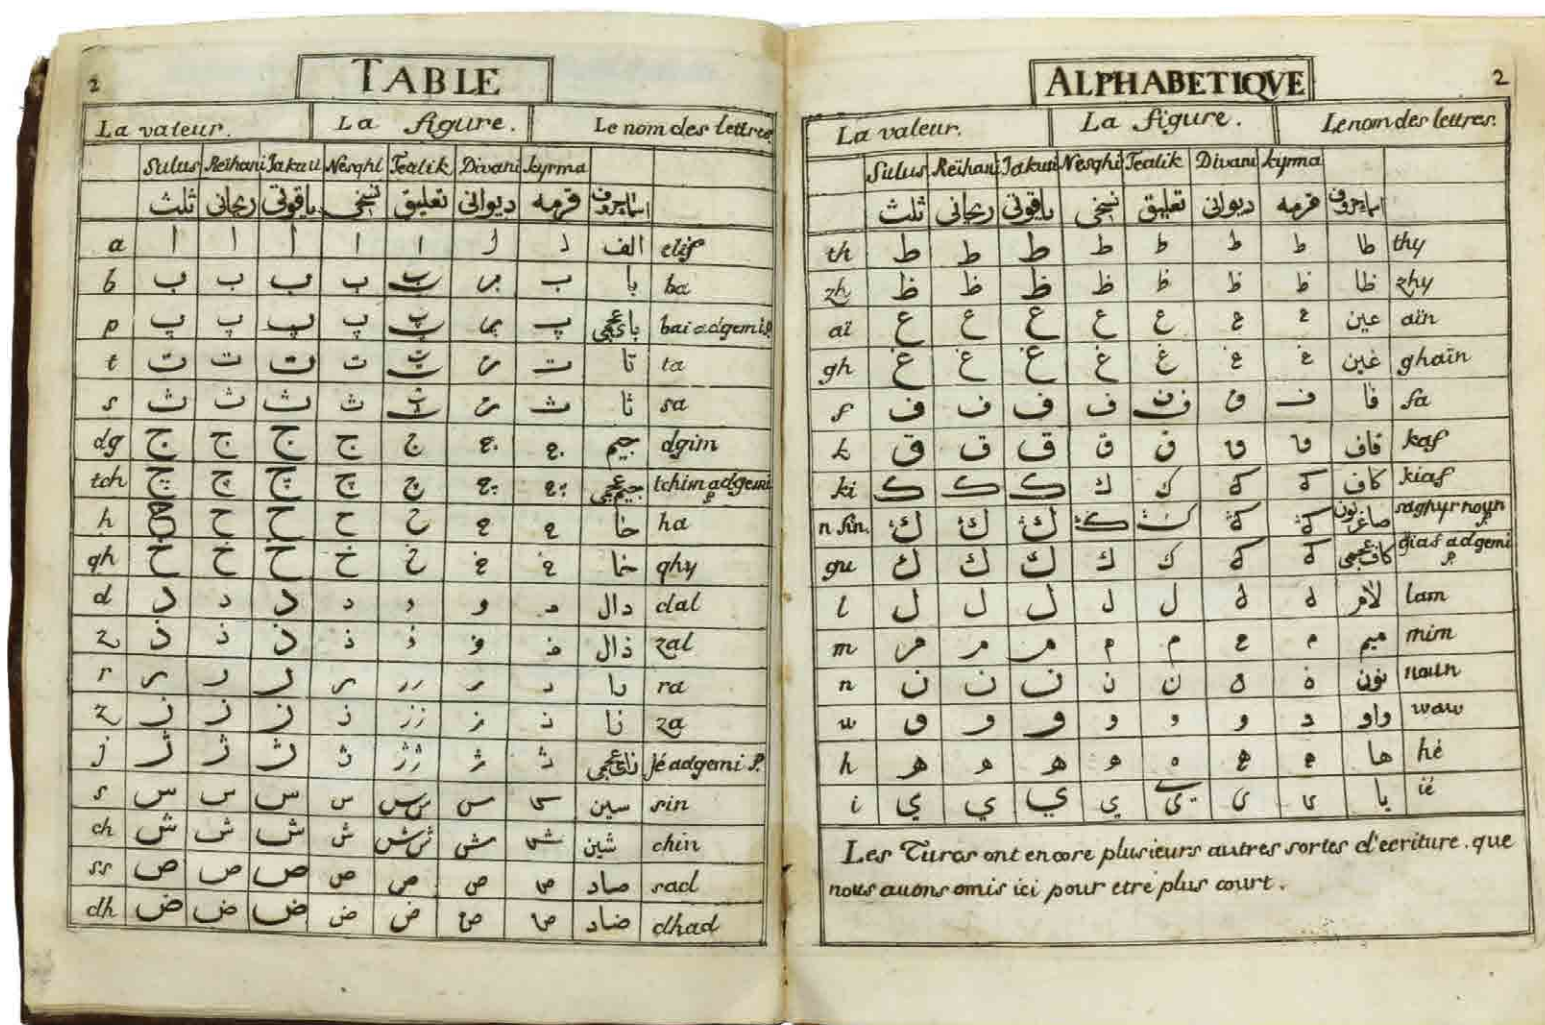 2
TABLE
La valeur. La figure. Le nom des lettres
Sulus Reihani Jakuti Nesghi Tealik Divani kyrma
ثلث ريحاني ياقوتي نسخي تعليق ديواني قرمه اسماء حروف
a ا ا ا ا ا ا ا الف elif
b ب ب ب ب ب ب ب با ba
p پ پ پ پ پ پ پ باى عجمى bai adgemi P.
t ت ت ت ت ت ت ت تا ta
s ث ث ث ث ث ث ث ثا sa
dg ج ج ج ج ج ج ج جيم dgim
tch چ چ چ چ چ چ چ جيم عجمى tchim adgemi P
h ح ح ح ح ح ح ح ha
gh خ خ خ خ خ خ خ خا ghy
d د د د د د د د دال dal
z ذ ذ ذ ذ ذ ذ ذ ذال zal
r ر ر ر ر ر ر ر را ra
z ز ز ز ز ز ز ز زا za
j ژ ژ ژ ژ ژ ژ ژ زاى عجمى jé adgemi P.
s س س س س س س س سين sin
ch ش ش ش ش ش ش ش شين chin
ss ص ص ص ص ص ص ص صاد sad
dh ض ض ض ض ض ض ض ضاد dhad
ALPHABETIQVE
2
La valeur. La figure. Le nom des lettres.
Sulus Reïhani Jakuti Nesghi Tealik Divani kyrma
ثلث ريحاني ياقوتي نسخي تعليق ديواني قرمه اسماء حروف
th ط ط ط ط ط ط ط طا thy
zh ظ ظ ظ ظ ظ ظ ظ ظا zhy
aï ع ع ع ع ع ع ع عين aïn
gh غ غ غ غ غ غ غ غين ghaïn
f ف ف ف ف ف ف ف فا fa
k ق ق ق ق ق ق ق قاف kaf
ki ك ك ك ك ك ك ك كاف kiaf
n fin. ڭ ڭ ڭ ڭ ڭ ڭ ڭ صاغر نون saghyr noun P
gu ك ك ك ك ك ك ك كاف عجمى giaf adgemi P
l ل ل ل ل ل ل ل لام lam
m م م م م م م م ميم mim
n ن ن ن ن ن ن ن نون noun
w و و و و و و و واو waw
h ه ه ه ه ه ه ه ها hé
i ي ي ي ي ي ى ى يا ié
Les Turcs ont encore plusieurs autres sortes d'ecriture. que
nous auons omis ici pour etre plus court.